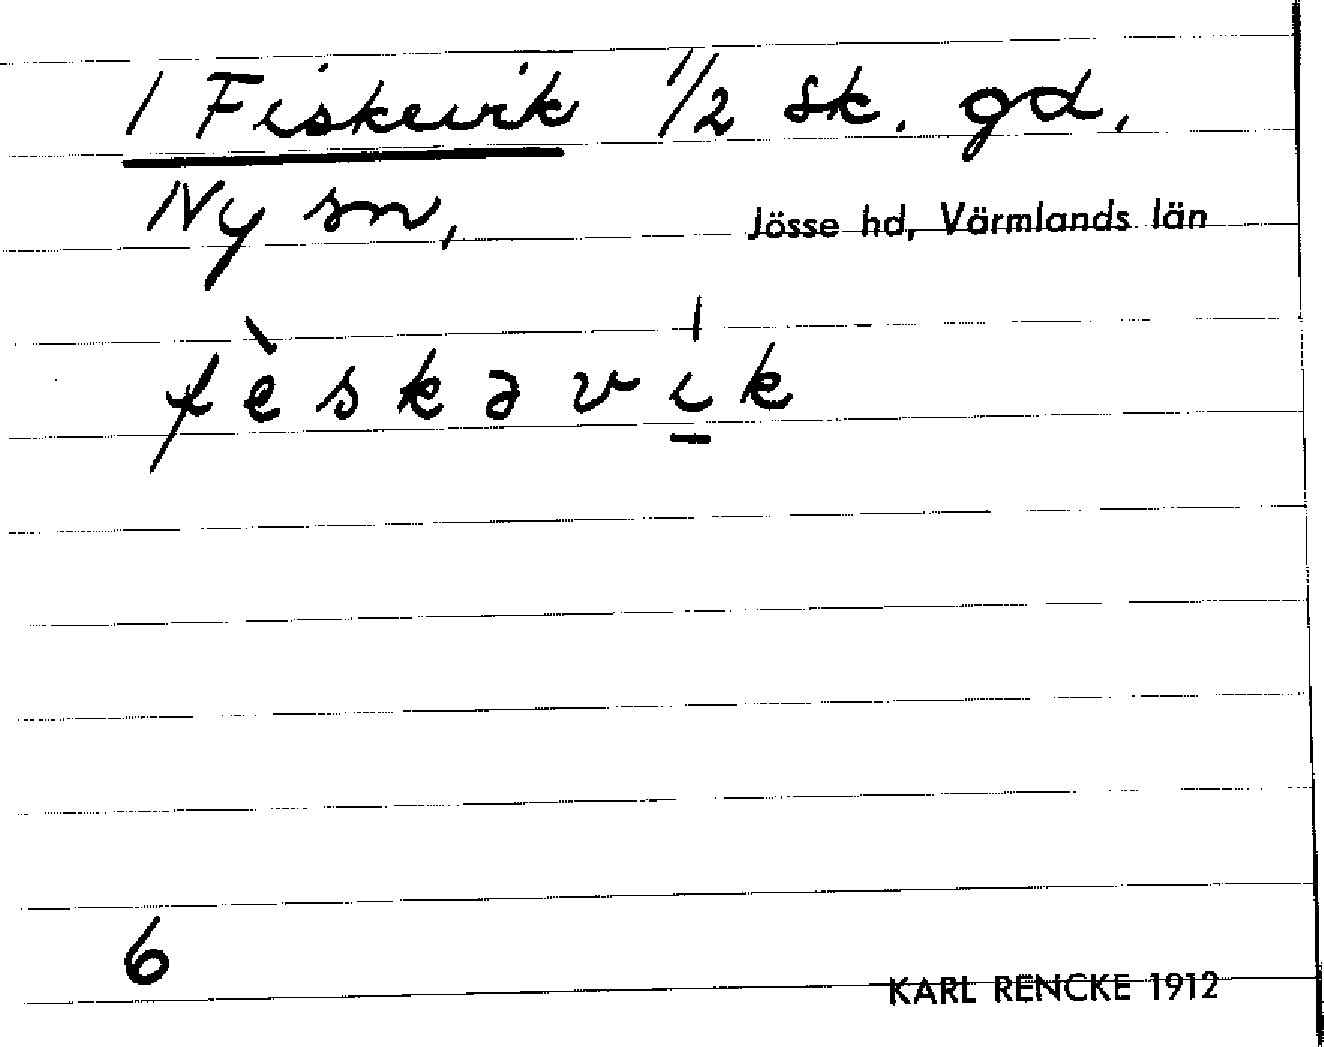 1 Fiskevik 1/2 sk. gd,
Ny sn, Jösse hd, Värmlands län
fèskəvi̠k
6
KARL RENCKE 1912